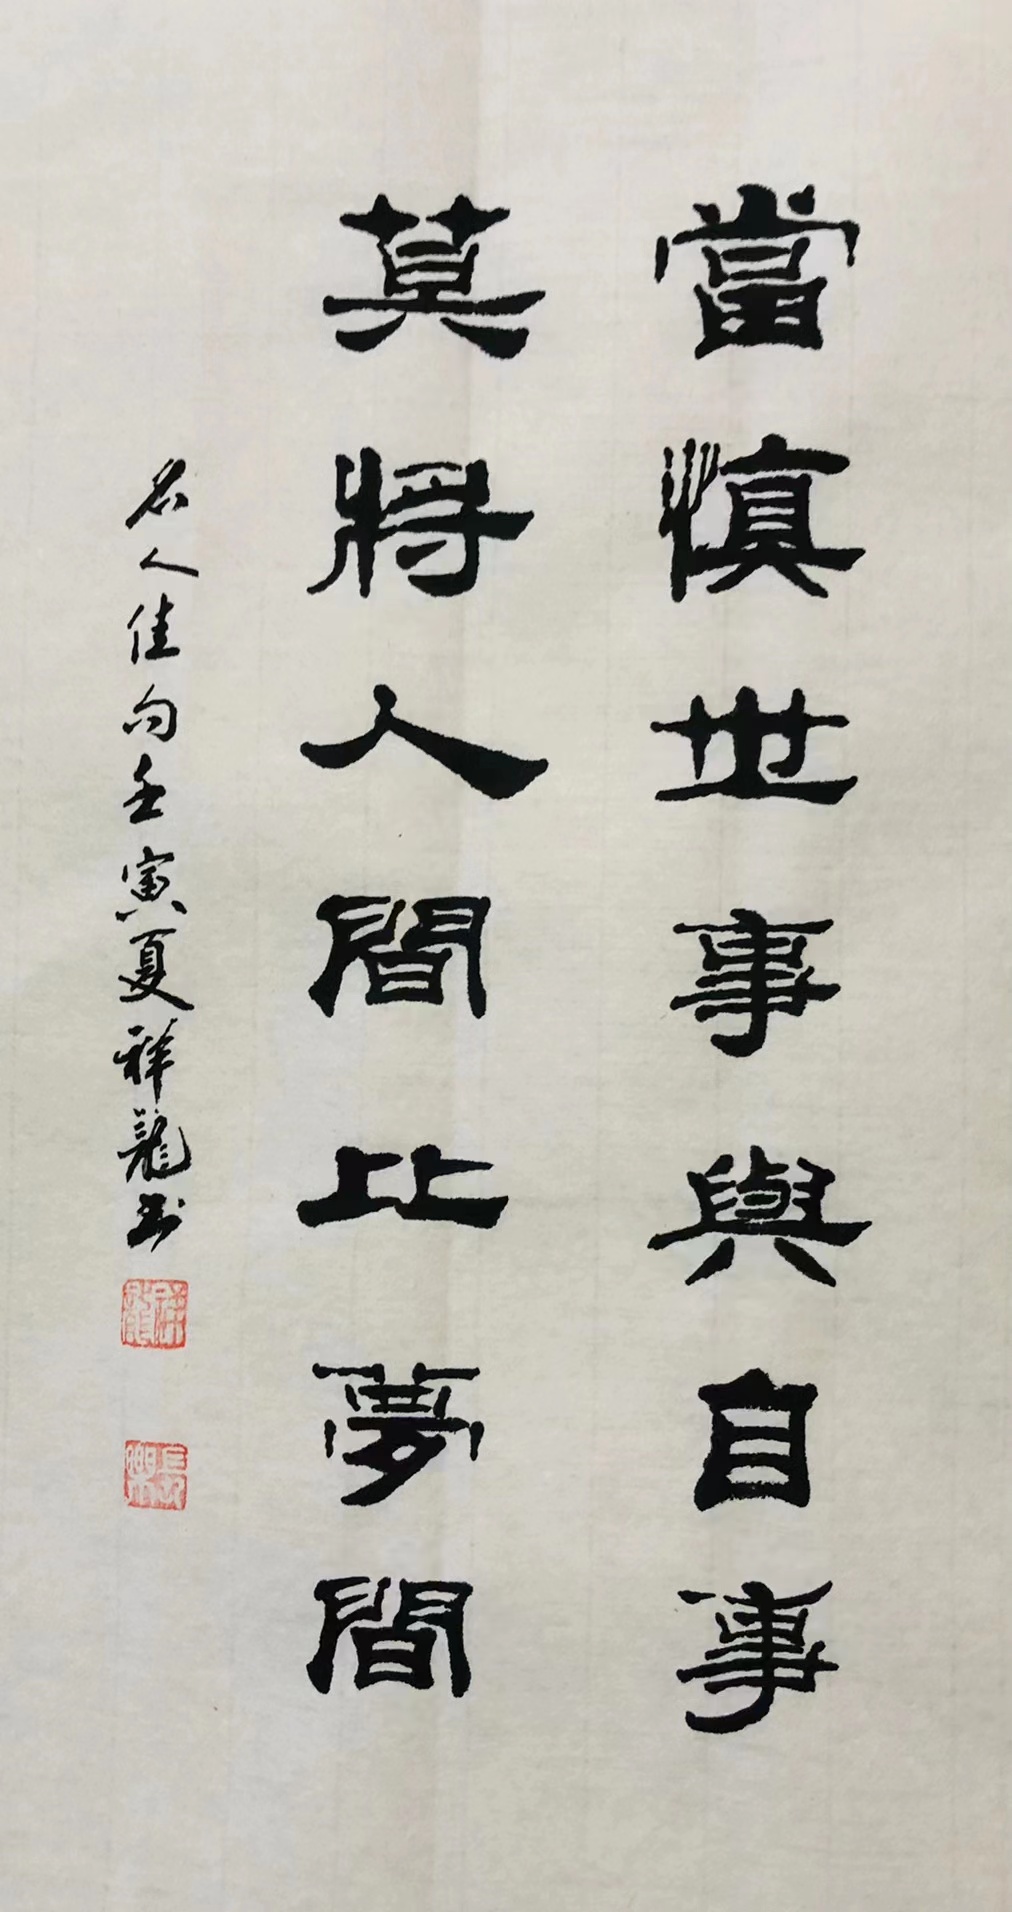 當慎世事與自事
莫將人間比夢間
名人佳句壬寅夏祥龍书
祥龍
長樂